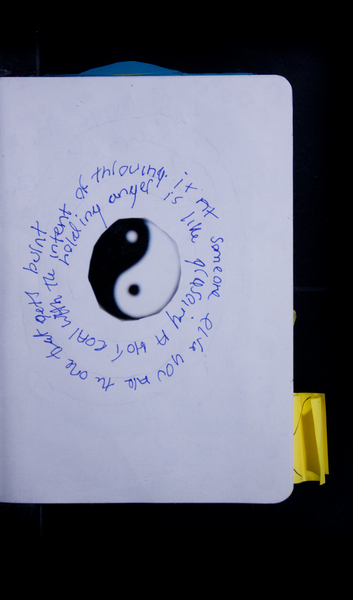 holding anger is like grasping A HOT COAL with the intent of throwing it at someone else you are the one that gets burnt